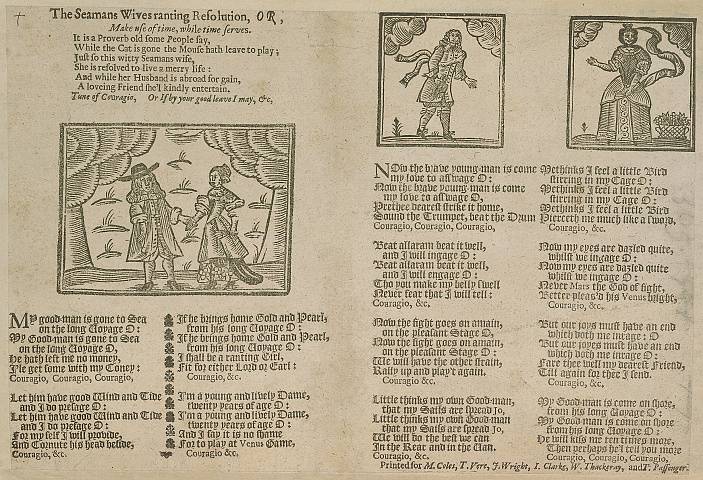 The Seamans Wives ranting Resolution, OR,
Make use of time, while time serves.
It is a Proverb old some People say,
While the Cat is gone the Mouse hath leave to play;
Just so this witty Seamans wife,
She is resolved to live a merry life:
And while her Husband is abroad for gain,
A loveing Friend she'l kindly entertain.
Tune of Couragio, Or If by your good leave I may, &c.
MY good-man is gone to Sea
on the long Voyage O:
My Good-man is gone to Sea
on the long Voyage O,
He hath left me no money,
I'le get some with my Coney:
Couragio, Couragio, Couragio,
Let him have good Wind and Tide
and I do presage O:
Let him have good Wind and Tide
and I do presage O:
For my self I will provide,
And Cornute his head beside,
Couragio, &c.
If he brings home Gold and Pearl,
from his long Voyage O:
If he brings home Gold and Pearl,
from his long Voyage O:
I shall be a ranting Girl,
Fit for either Lord or Earl:
Couragio, &c.
I'm a young and lively Dame,
twenty years of age O:
I'm a young and lively Dame,
twenty years of age O:
And I say it is no shame
For to play at Venus Game,
Couragio, &c.
NOw the brave young-man is come
my love to asswage O:
Now the brave young-man is come
my love to asswage O,
Prethee dearest strike it home,
Sound the Trumpet, beat the Drum
Couragio, Couragio, Couragio,
Beat allaram beat it well,
and I will ingage O:
Beat allaram beat it well,
and I will engage O:
Tho you make my belly swell
Never fear that I will tell:
Couragio, &c.
Now the fight goes on amain,
on the pleasant Stage O,
Now the fight goes on amain,
on the pleasant Stage O:
We will have the other strain,
Rally up and play't again.
Couragio &c.
Little thinks my own Good-man,
that my Sails are spread Jo,
Little thinks my own Good-man
that my Sails are spread Jo.
We will do the best we can
In the Rear and in the Van.
Couragio, &c.
Methinks I feel a little Bird
stirring in my Cage O:
Methinks I feel a little Bird
stirring in my Cage O:
Methinks I feel a little Bird
Pierceth me much like a sword,
Couragio, &c.
Now my eyes are dazled quite,
whilst we ingage O:
Now my eyes are dazled quite
whilst we ingage O:
Never Mars the God of fight,
Better pleas'd his Venus bright,
Couragio, &c.
But our joys must have an end
which doth me inrage O:
But our joyes must have an end
which doth me inrage O:
Fare thee well my dearest Friend,
Till again for thee I send.
Couragio, &c.
My Good-man is come on shore,
from his long Voyage O:
My Good-man is come on shore
from his long Voyage O:
He will kiss me ten times more,
Then perhaps he'l tell you more
Couragio, Couragio, Couragio,
Printed for M. Coles, T. Vere, J. Wright, I. Clarke, W. Thackeray, and T. Passenger.